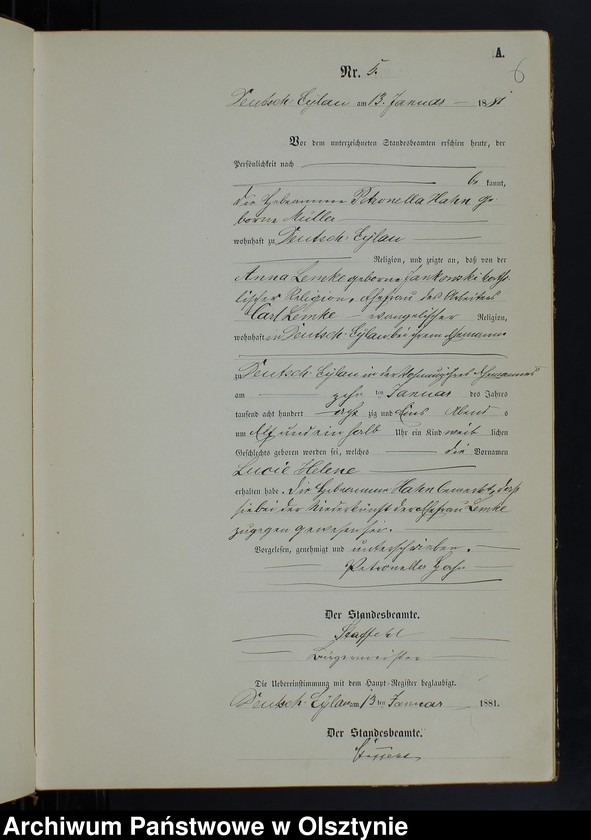 A.
6
Nr. 5.
Deutsch Eylau am 13. Januar 1881
Vor dem unterzeichneten Standesbeamten erschien heute, der
Persönlichkeit nach
be kannt,
die Hebeamme Petronella Hahn ge-
borne Müller
wohnhaft zu Deutsch Eylau
Religion, und zeigte an, daß von der
Anna Lemke geborne Jankowski katho-
lischer Religion, Ehefrau des Arbeiters
Carl Lemke evangelischer Religion,
wohnhaft in Deutsch Eylau bei ihrem Ehemanne
zu Deutsch Eylau in der Wohnung ihres Ehemannes
am zehn ten Januar des Jahres
tausend acht hundert acht zig und Eins Abend s
um Elf und ein halb Uhr ein Kind weib lichen
Geschlechts geboren worden sei, welches die Vornamen
Lucie Helene
erhalten habe. Die Hebeamme Hahn bemerkt, daß
sie bei der Niederkunft der Ehefrau Lemke
zugegen gewesen sei.
Vorgelesen, genehmigt und unterschrieben.
Petronella Hahn
Der Standesbeamte.
Bürgermeister
Die Uebereinstimmung mit dem Haupt-Register beglaubigt.
Deutsch Eylau am 13 ten Januar 1881.
Der Standesbeamte.
Archiwum Państwowe w Olsztynie